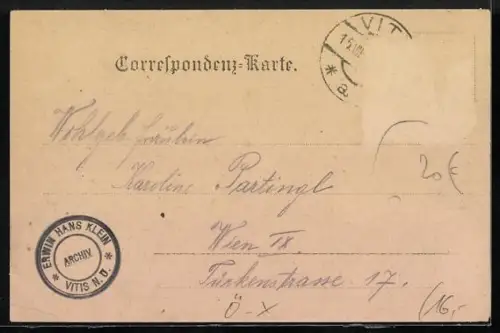 VIT
15.VIII
* a
Correspondenz-Karte.
Wohlgeb. Fräulein
Karoline Partingl
20€
Wien IX.
Türkenstrasse 17.
ERWIN HANS KLEIN
ARCHIV
* VITIS N.Ö. *
Ö-X
(16,-